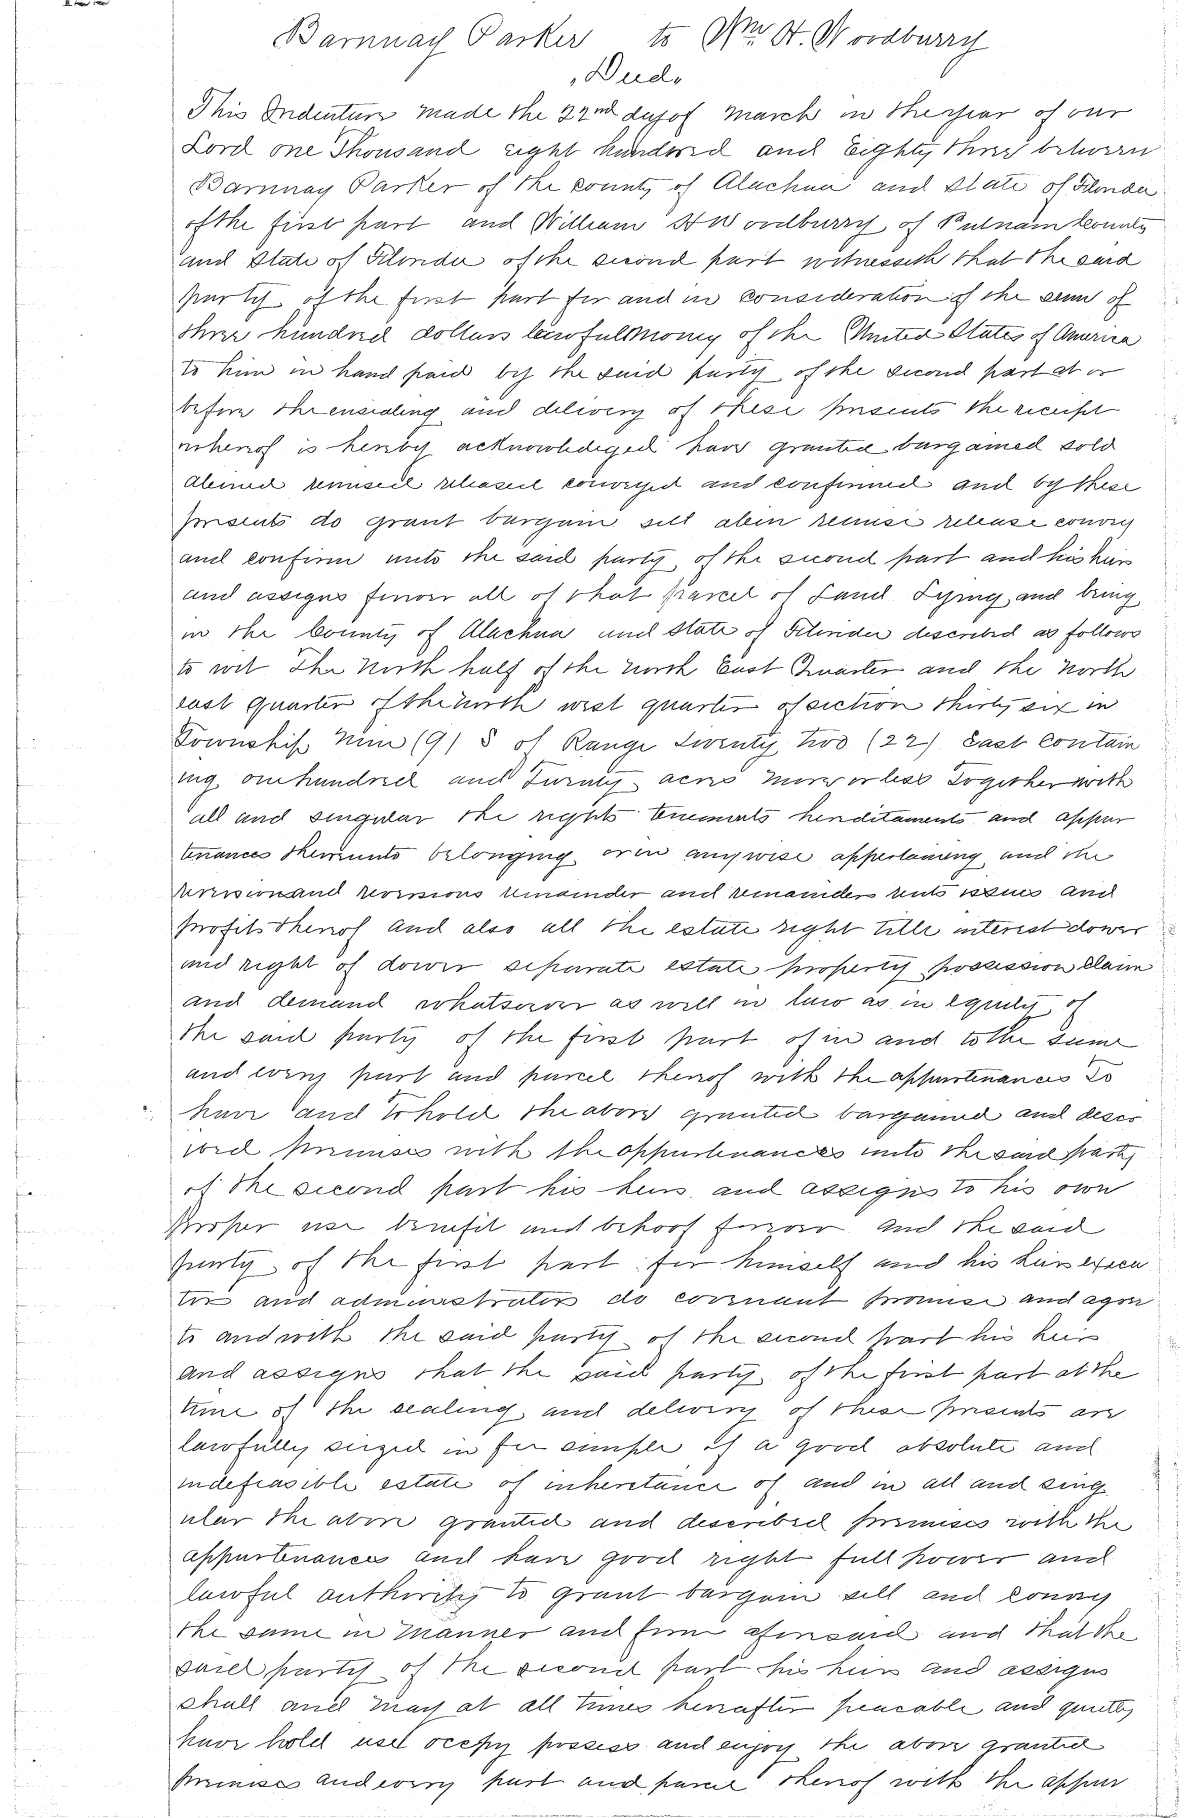 Barnnay Parker to Wm H. Woodburry
"Deed"
This Indenture made the 22nd day of March in the year of our
Lord one Thousand eight hundred and Eighty three between
Barnnay Parker of the county of Alachua and State of Florida
of the first part and William H Woodburry of Putnam County
and State of Florida of the second part witnesseth that the said
party of the first part for and in consideration of the sum of
three hundred dollars lawful money of the United States of America
to him in hand paid by the said party of the second part at or
before the ensealing and delivery of these presents the receipt
whereof is hereby acknowledged have granted bargained sold
aliened remised released conveyed and confirmed and by these
presents do grant bargain sell alien remise release convey
and confirm unto the said party of the second part and his heirs
and assigns forever all of that parcel of Land Lying and being
in the County of Alachua and State of Florida described as follows
to wit The North half of the North East Quarter and the North
east quarter of the North west quarter of section thirty six in
Township Nine (9) S of Range Twenty Two (22) East contain
ing one hundred and Twenty acres more or less Together with
all and singular the rights tenements hereditaments and appur
tenances thereunto belonging or in anywise appertaining and the
reversion and reversions remainder and remainders rents issues and
profits thereof and also all the estate right title interest dower
and right of dower separate estate property possession claim
and demand whatsoever as well in law as in equity of
the said party of the first part of in and to the same
and every part and parcel thereof with the appurtenances To
have and to hold the above granted bargained and descr
ibed premises with the appurtenances unto the said party
of the second part his heirs and assigns to his own
proper use benefit and behoof forever and the said
party of the first part for himself and his heirs execu
tors and administrators do covenant promise and agree
to and with the said party of the second part his heirs
and assigns that the said party of the first part at the
time of the sealing and delivery of these presents are
lawfully seized in fee simple of a good absolute and
indefeasible estate of inheretance of and in all and sing
ular the above granted and described premises with the
appurtenances and have good right full power and
lawful authority to grant bargain sell and convey
the same in manner and form aforesaid and that the
said party of the second part his heirs and assigns
shall and may at all times hereafter peacable and quietly
have hold use occupy possess and enjoy the above granted
premises and every part and parcel thereof with the appur